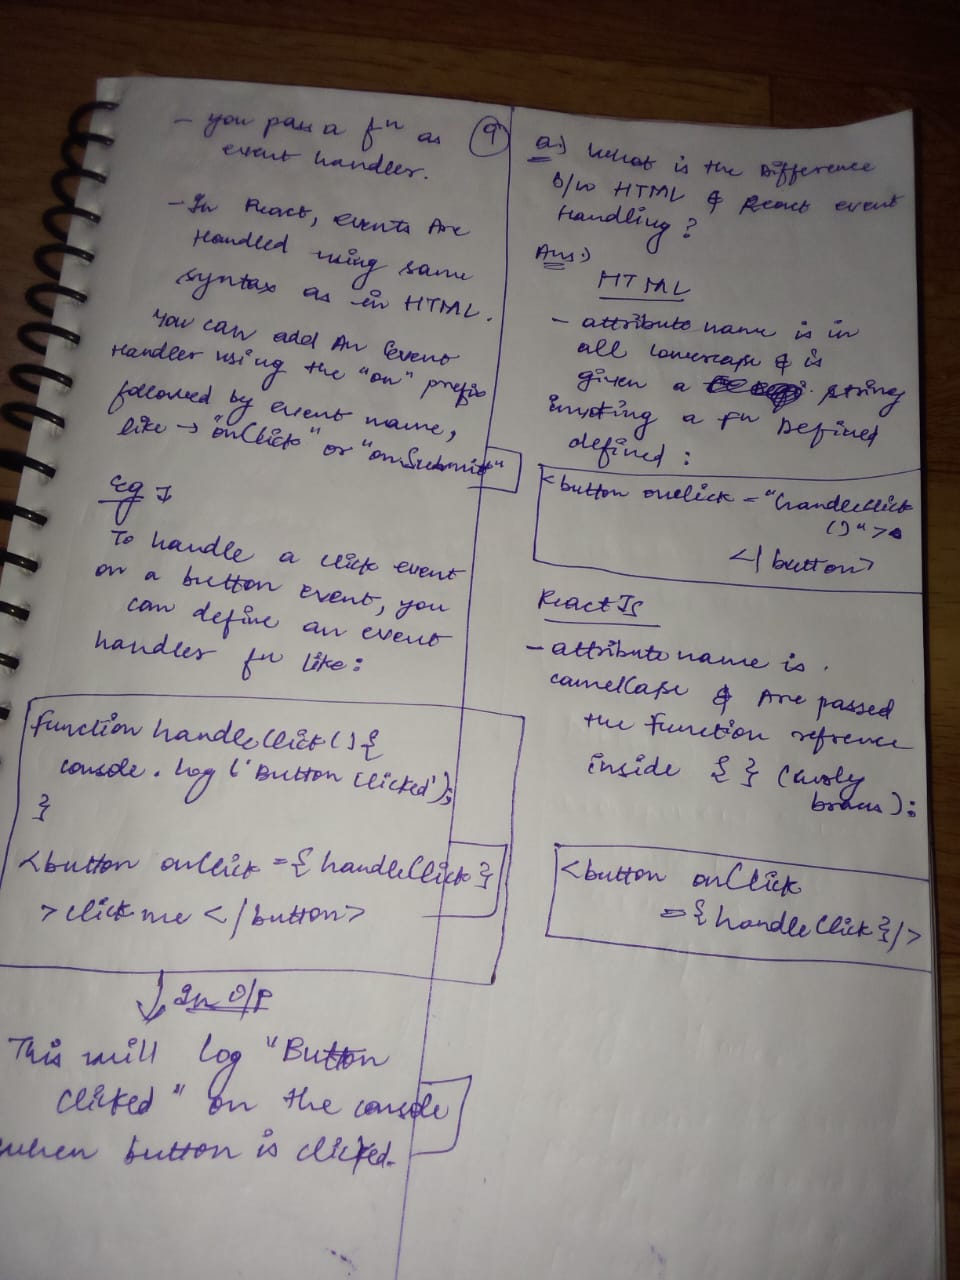 - you pass a fn as
event handler.
- In React, events Are
Handled using same
syntax as in HTML.
You can add An Event
Handler using the "on" prefix
followed by event name,
like → "onClick" or "onSubmit"
Eg :
To handle a click event
on a button event, you
can define an event
handler fn like:
function handleClick() {
console.log('Button Clicked');
}
<button onClick={handleClick}
>click me </button>
In O/P
This will log "Button
Clicked" on the console
when button is clicked.
9
Q.) What is the Difference
b/w HTML & React event
Handling?
Ans:)
HTML
- attribute name is in
all lowercase & is
given a string
invoking a fn Defined
defined :
<button onclick = "handleClick
()">
</button>
React JS
- attribute name is
camelCase & Are passed
the function refrence
inside { } (curly
braces):
<button onClick
={handleClick}/>